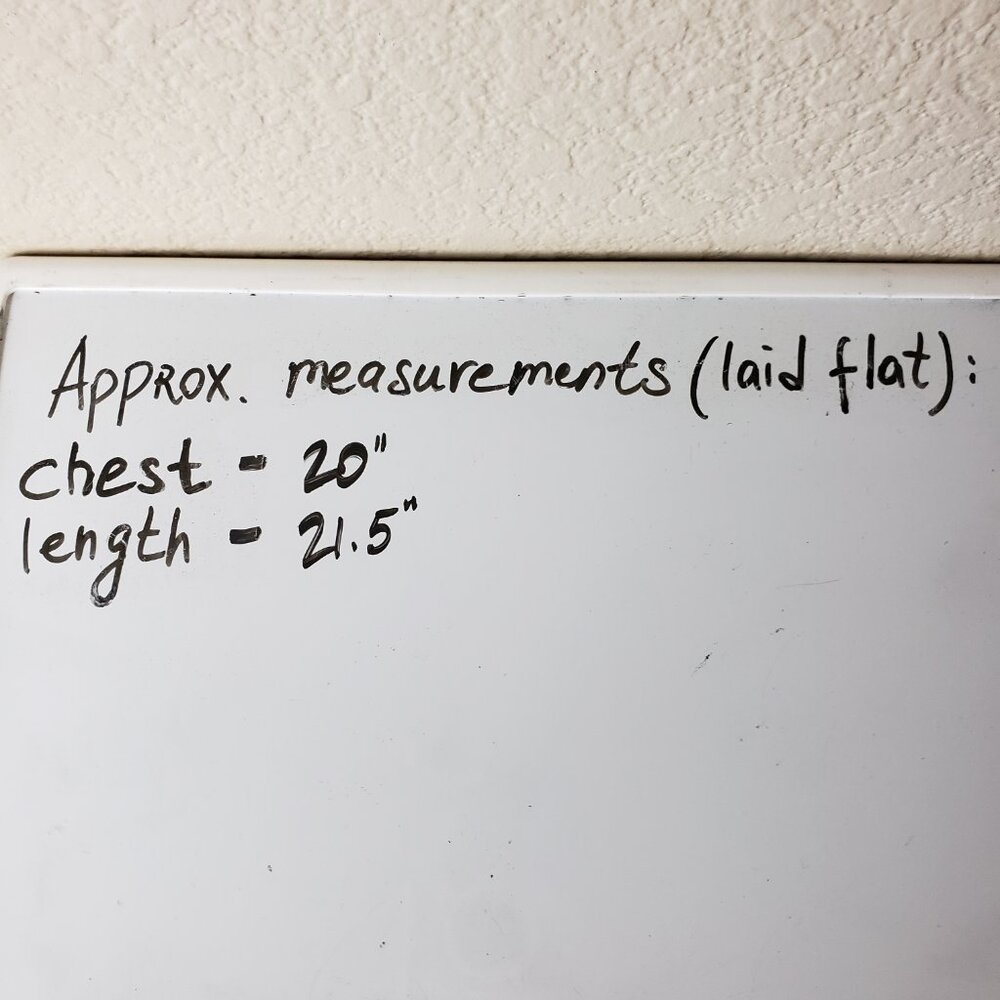 Approx. measurements (laid flat):
chest - 20"
length - 21.5"